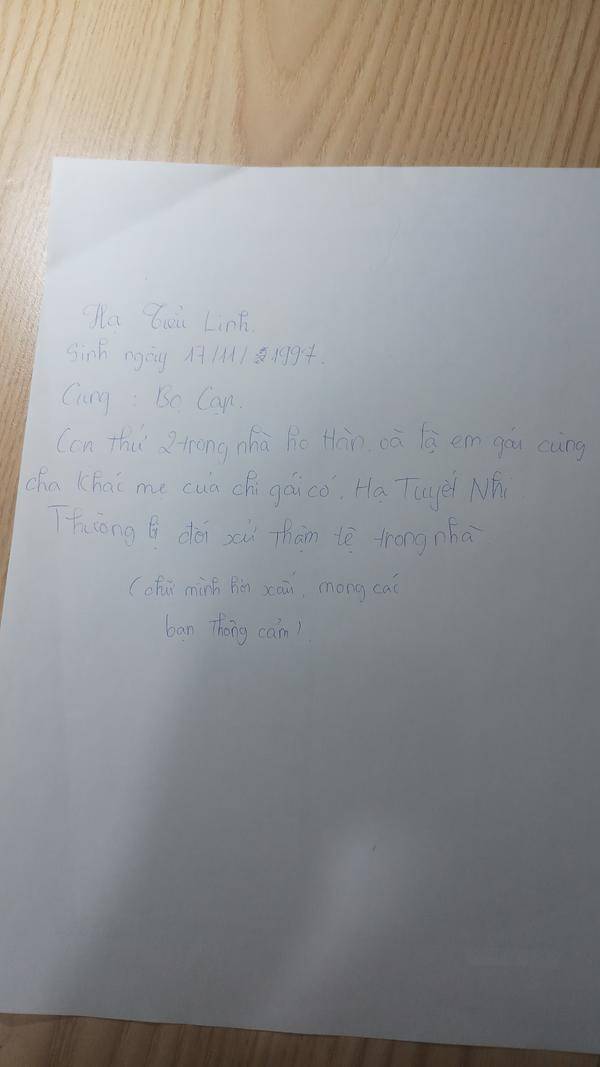 Hạ Tiểu Linh.
Sinh ngày 17/11/ 1997.
Cung : Bọ Cạp.
Con thứ 2 trong nhà họ Hàn. và là em gái cùng
cha khác mẹ của chị gái cô. Hạ Tuyết Nhi.
Thường bị đối xử thậm tệ trong nhà
(chữ mình hơi xấu, mong các
bạn thông cảm).